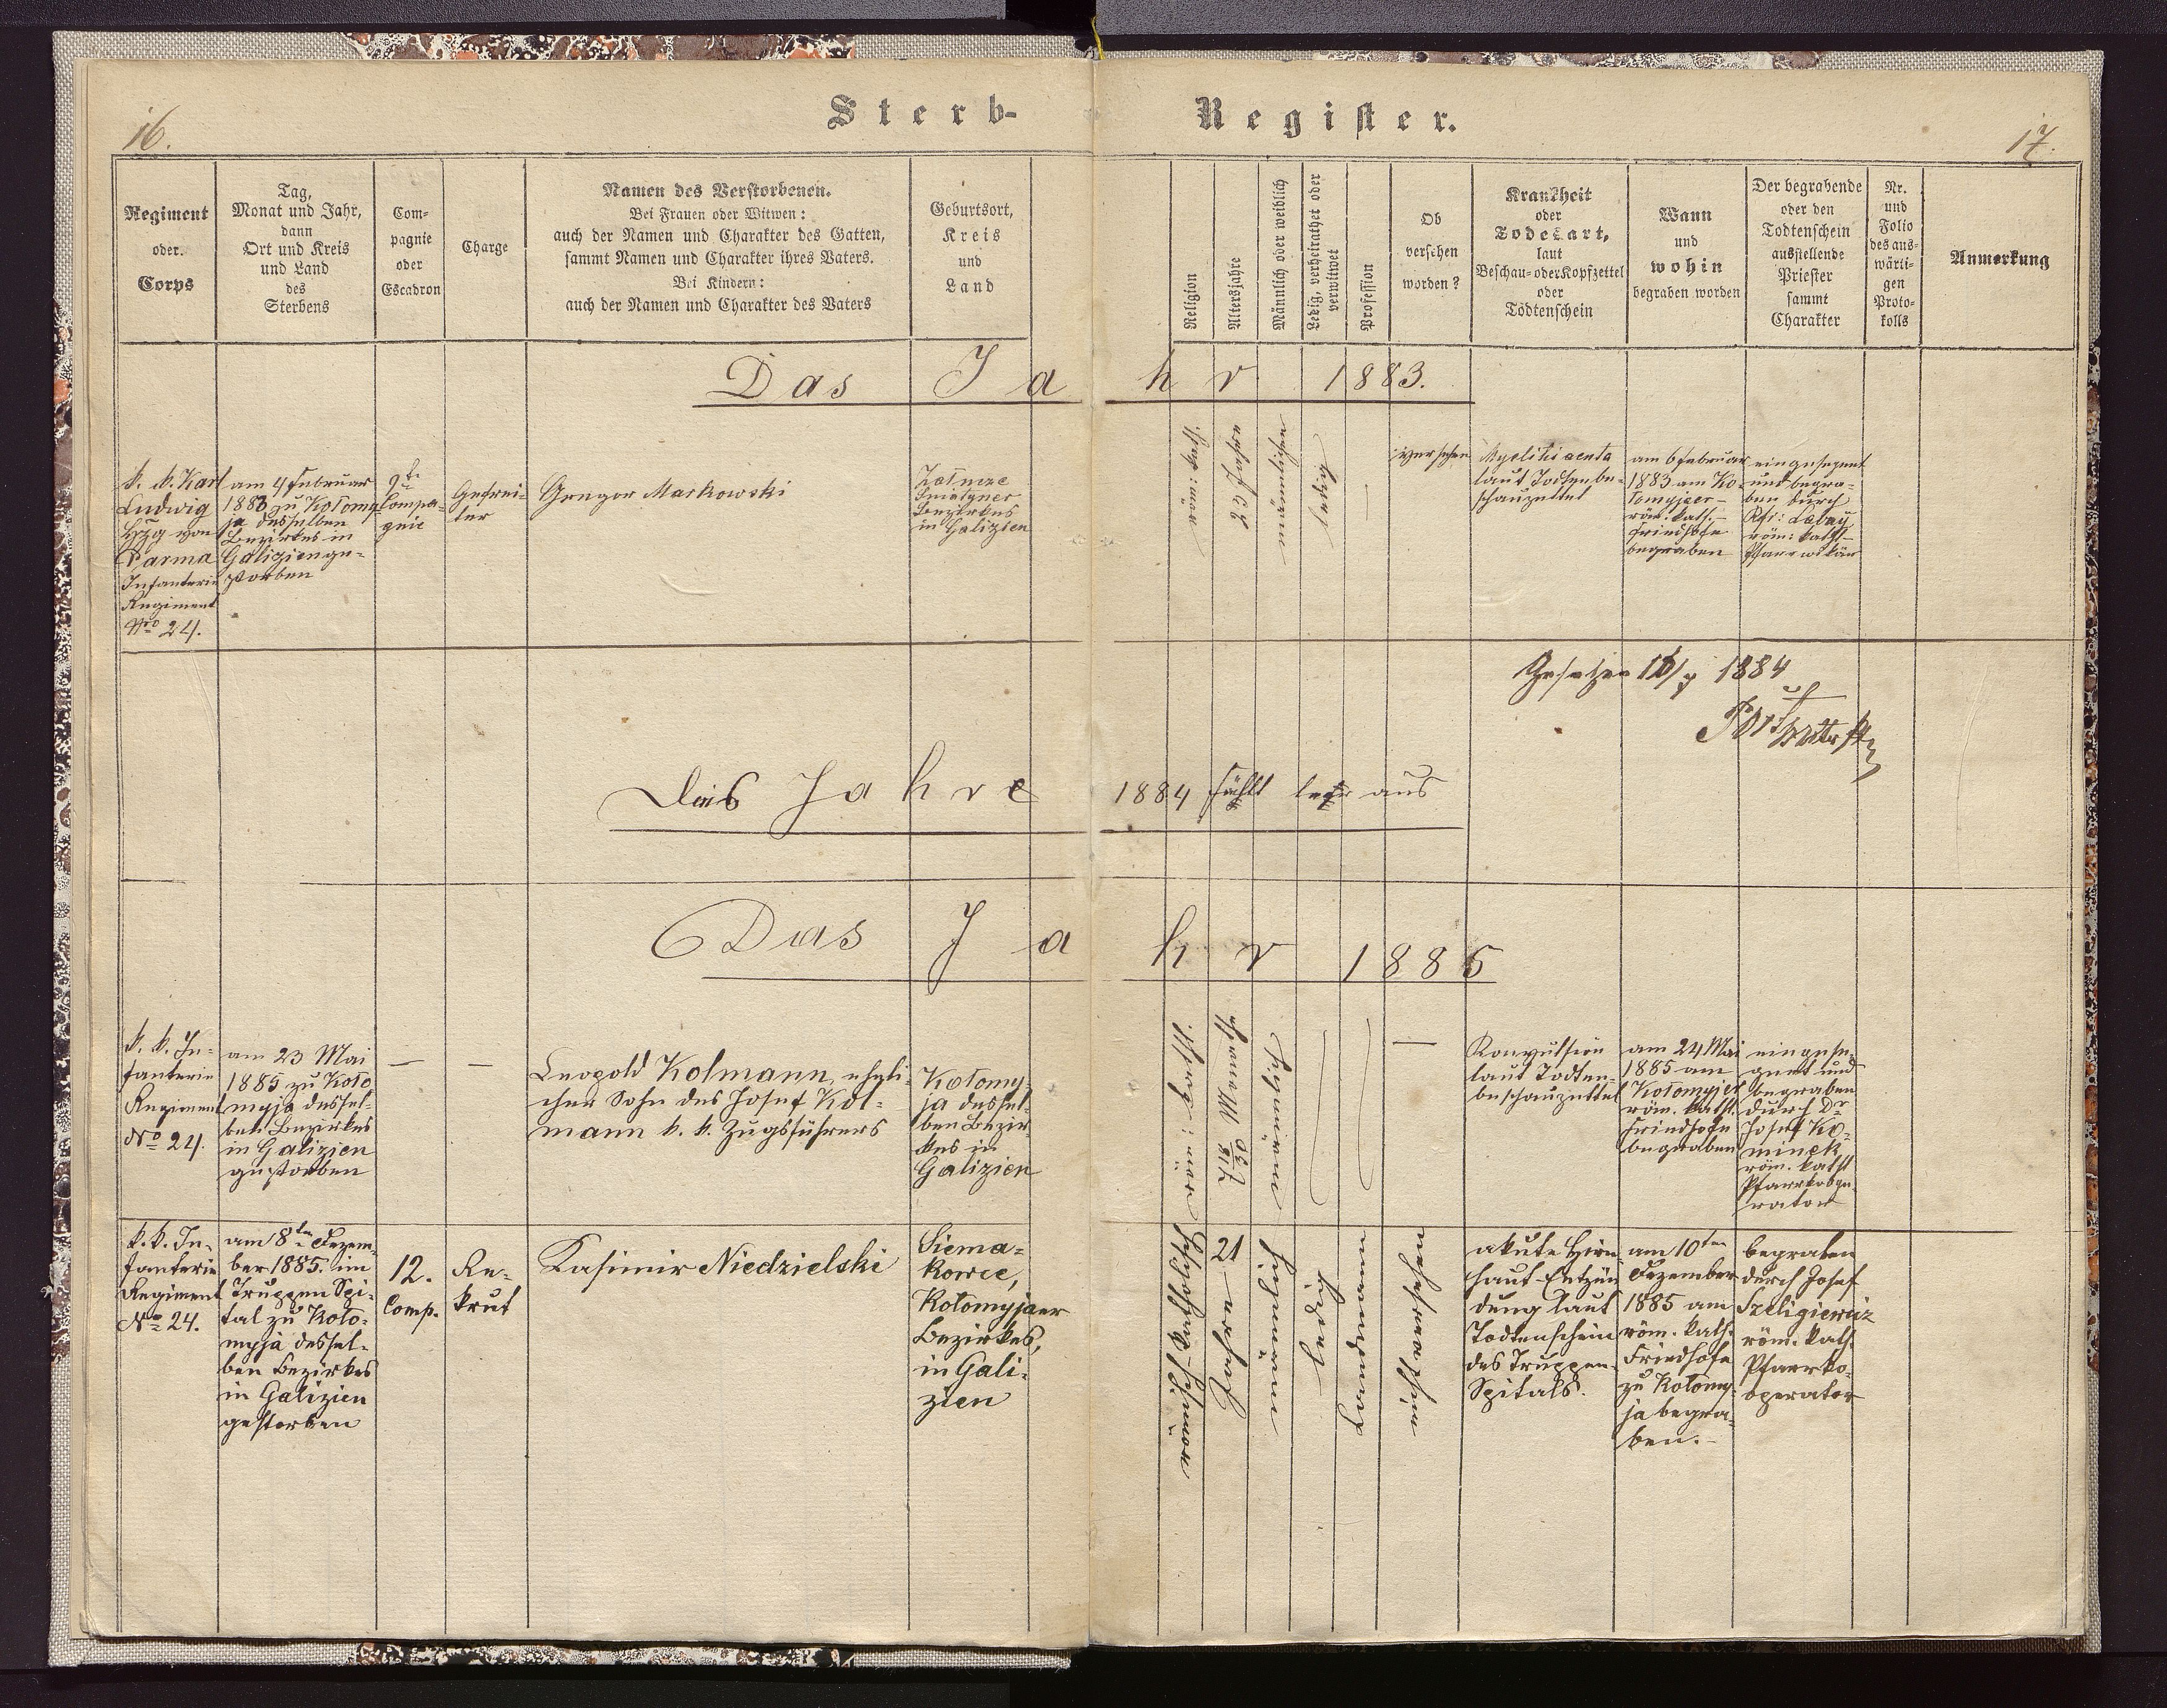 16.
Sterb-
Register.
17.
Regiment
oder
Corps
Tag,
Monat und Jahr,
dann
Ort und Kreis
und Land
des
Sterbens
Com-
pagnie
oder
Escadron
Charge
Namen des Verstorbenen.
Bei Frauen oder Witwen:
auch der Namen und Charakter des Gatten,
sammt Namen und Charakter ihres Vaters.
Bei Kindern:
auch der Namen und Charakter des Vaters
Geburtsort,
Kreis
und
Land
Religion
Altersjahre
Männlich oder weiblich
Ledig, verheirathet oder
verwitwet
Profession
Ob
versehen
worden?
Krankheit
oder
Todesart,
laut
Beschau- oder Kopfzettel
oder
Todtenschein
Wann
und
wohin
begraben worden
Der begrabende
oder den
Todtenschein
ausstellende
Priester
sammt
Charakter
Nr.
und
Folio
des aus-
wärti-
gen
Proto-
kolls
Anmerkung
Das Jahr 1883.
k. k. Karl
Ludwig
Hzg von
Parma
Infanterie
Regiment
Nro 24.
am 4 Februar
1883 zu Kolomy-
ja desselben
Bezirkes in
Galizien ge-
storben
9te
Compa-
gnie
Gefrei-
ter
Gregor Markowski
Sniatyner
Bezirkes
in Galizien
röm: kath.
23 Jahre
männlichen
ledig
versehen
laut Todtenbe-
schauzettel
am 6 Februar
1883 am Ko-
lomyjaer
röm. kath.
Friedhofe
begraben
eingesegnet
und begra-
ben durch
röm: kath.
Pfarrvikär
Gesehen 1884
Das Jahre 1884 fällt leer aus
Das Jahr 1885
k. k. In-
fanterie
Regiment
No 24.
am 23 Mai
1885 zu Kolo
myja dessel-
ben Bezirkes
in Galizien
gestorben
—
—
Leopold Kolmann, eheli-
cher Sohn des Josef Kol-
mann k. k. Zugsführers
Kolomy-
ja dessel-
ben Bezir-
kes in
Galizien
röm: kath.
Monath
männlich
—
Konvulsion
laut Todten-
beschauzettel
am 24 Mai
1885 am
Kolomyjer
röm. kath.
Friedhofe
begraben
eingese-
gnet und
begraben
durch Dr
Josef Ko-
minek
röm. kath
Pfarrkoope-
rator
k. k. In-
fanterie
Regiment
No 24.
am 8ten Dezem-
ber 1885. im
Truppen Spi-
tal zu Kolo-
myja dessel-
ben Bezirkes
in Galizien
gestorben
12.
Comp.
Re-
krut
Kasimir Niedzielski
Siema-
kowce,
Kolomyjaer
Bezirkes,
in Gali-
zien
römisch-katholisch
21 Jahre
männlich
ledig
Landmann
nicht versehen
akute Hirn
haut-Entzün
dung laut
Todtenschein
des Truppen-
Spitals.
am 10ten
Dezember
1885 am
röm. kath.
Friedhofe
zu Kolomy-
ja begra-
ben.
begraben
durch Josef
Szeligiewicz
röm. kath.
Pfarrko-
operator